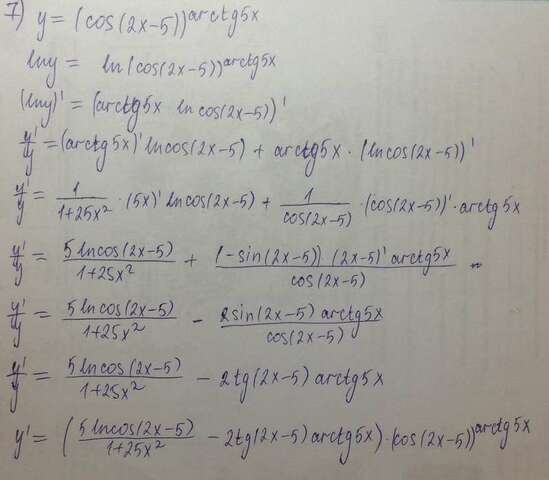 7) y = (cos(2x-5))^arctg5x
lny = ln(cos(2x-5))^arctg5x
(lny)' = (arctg5x lncos(2x-5))'
y'/y = (arctg5x)' lncos(2x-5) + arctg5x · (lncos(2x-5))'
y'/y = 1/(1+25x²) · (5x)' lncos(2x-5) + 1/cos(2x-5) · (cos(2x-5))' · arctg5x
y'/y = 5lncos(2x-5)/(1+25x²) + (-sin(2x-5)) (2x-5)' arctg5x/cos(2x-5) =
y'/y = 5lncos(2x-5)/(1+25x²) - 2sin(2x-5) arctg5x/cos(2x-5)
y'/y = 5lncos(2x-5)/(1+25x²) - 2tg(2x-5) arctg5x
y' = (5lncos(2x-5)/(1+25x²) - 2tg(2x-5) arctg5x) · (cos(2x-5))^arctg5x